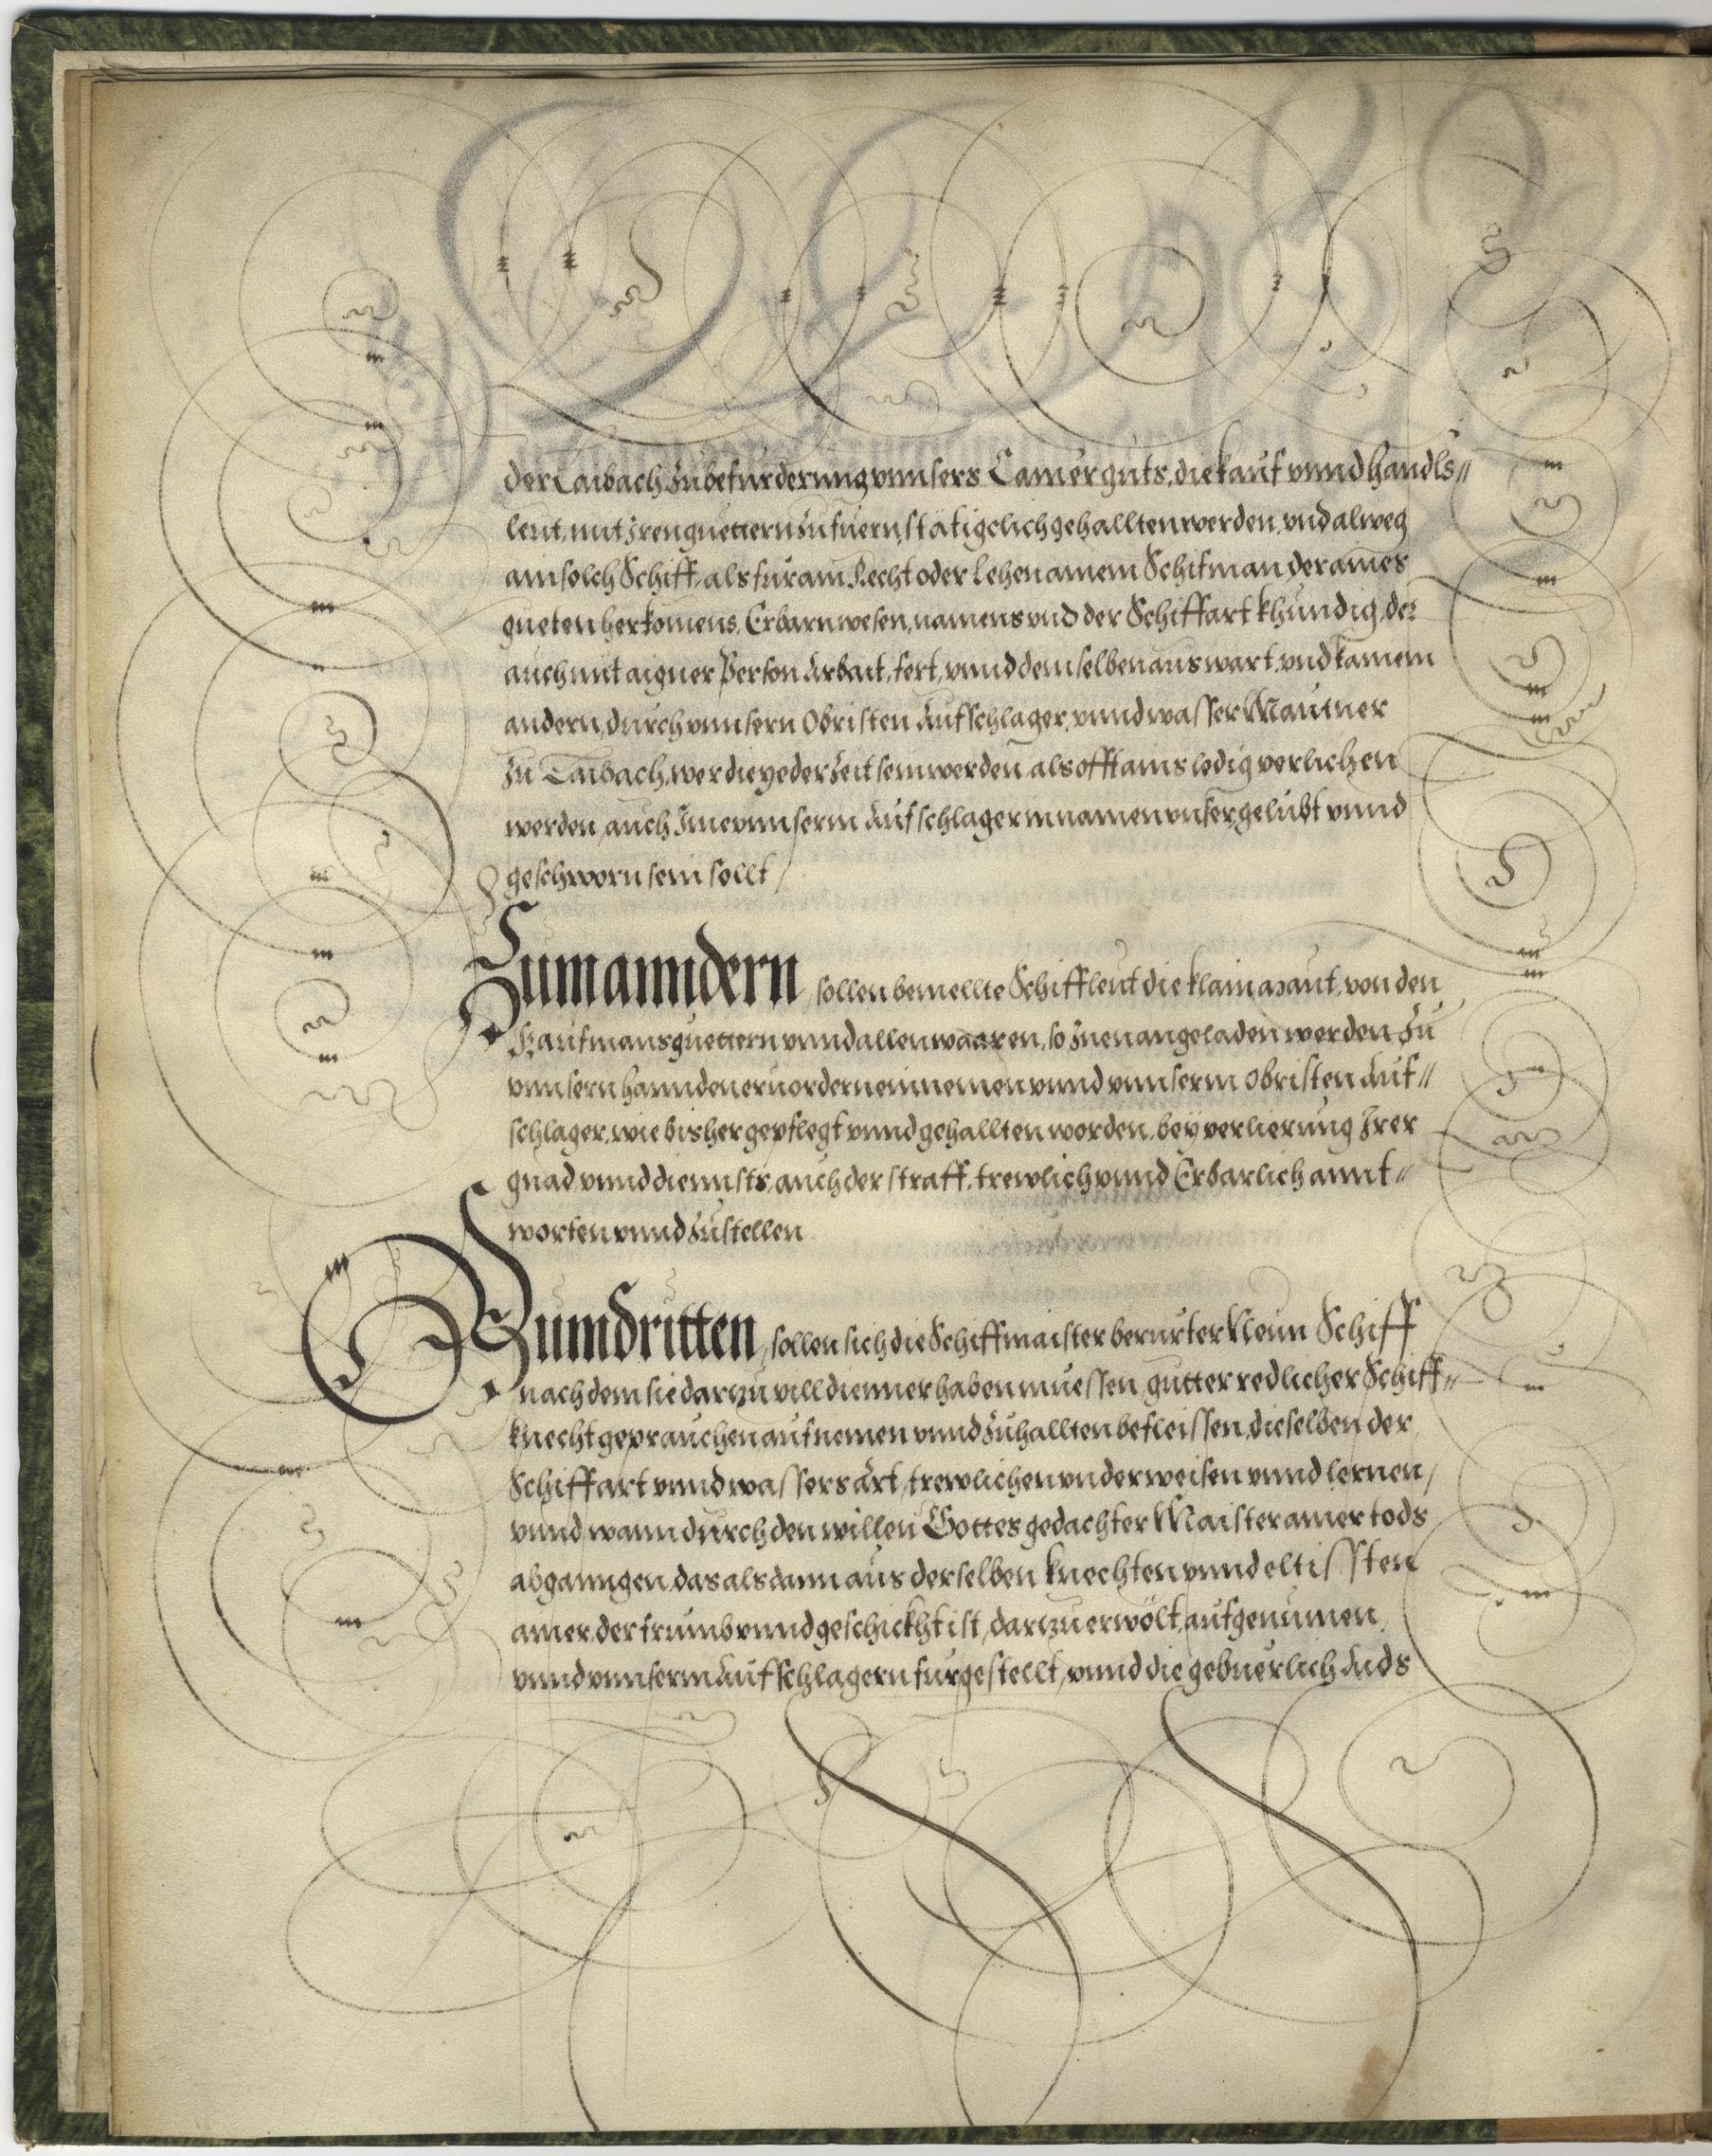 der Laibach zu befurderung vnnsers Camerguts, die kauf vnnd handls//
leut, mit Jren guettern zu fuern, stätigclich gehallten werden, vnd alweg
ain solch Schiff, als für ain Recht oder Lehen ainem Schifman, der aines
gueten herkomens, Erbarn wesen, namens vnd der Schiffart khündig, der
auch mit aigner Person Arbait, fert, vnnd demselben auswart, vnd kainem
andern, durch vnnsern Obristen Aufschlager, vnnd wasser Mautner
zu Laibach, wer die yederzeit sein werden, als offt ains ledig verlichen
werden, auch Ime vnnserm Aufschlager in namen vnser, gelübt vnnd
geschworn sein sollt /
Zum anndern, sollen bemellte Schiffleut die klain Maut, von den
Kaufmansguettern vnnd allen waaren, so Inen angeladen werden, zu
vnnsern hannden eruordern einnemen vnnd vnnserm Obristen Auf//
schlager, wie bisher gepflegt vnnd gehallten worden, bey verlierung Irer
gnad vnnd diennsts, auch der straff, trewlich vnnd Erbarlich annt//
worten vnnd zustellen
Zum dritten, sollen sich die Schiffmaister berürter Neun Schiff
nach dem sie darzu vill dienner haben muessen, gutter redlicher Schiff//
knecht geprauchen aufnemen vnnd zuhallten befleissen, dieselben der
Schiffart vnnd wassers Art, trewlichen vnderweisen vnnd lernen,
vnnd wann durch den willen Gottes gedachter Maister ainer tods
abganngen, das alsdann aus derselben knechten vnnd eltissten
ainer, der frumb vnnd geschickht ist, darzu erwölt, aufgenumen,
vnnd vnnserm Aufschlagern furgestellt, vnnd die gebuerlich Aids